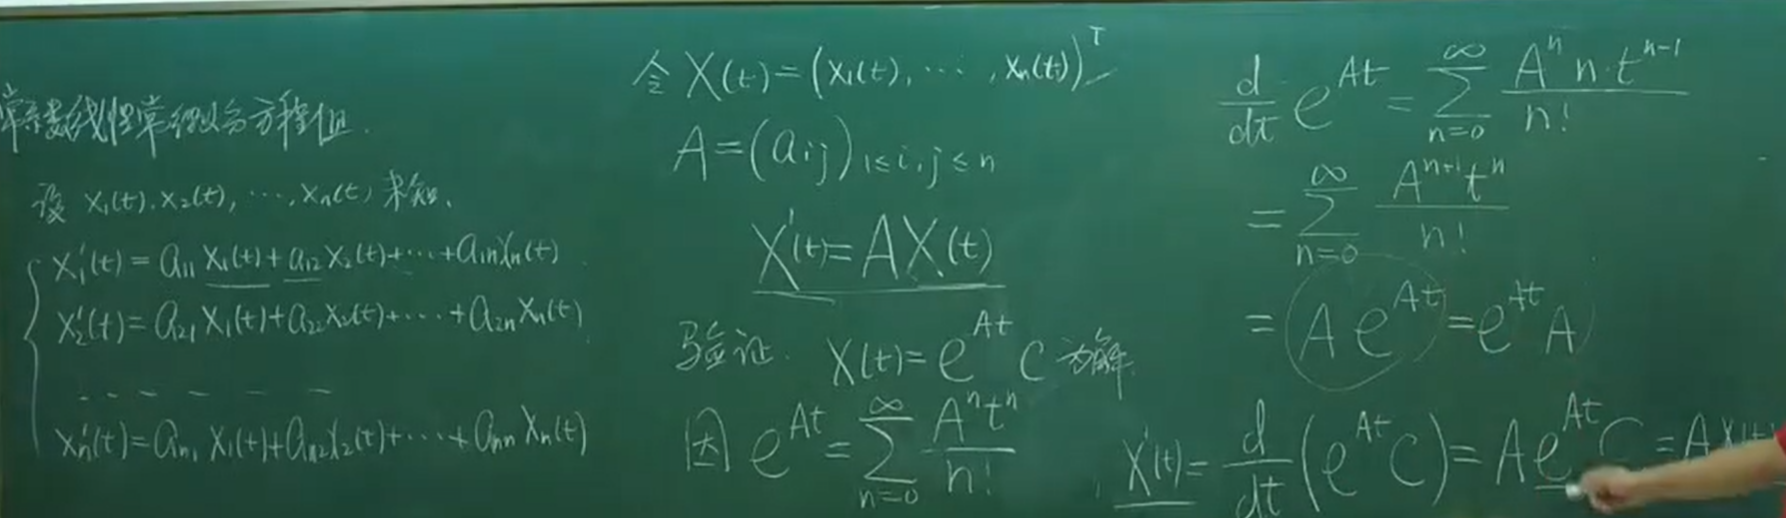 常系数线性常微分方程组.
设 x₁(t), x₂(t), ⋯, xₙ(t) 未知.
x₁'(t) = a₁₁ x₁(t) + a₁₂ x₂(t) + ⋯ + a₁ₙ xₙ(t)
x₂'(t) = a₂₁ x₁(t) + a₂₂ x₂(t) + ⋯ + a₂ₙ xₙ(t)
- - - - - -
xₙ'(t) = aₙ₁ x₁(t) + aₙ₂ x₂(t) + ⋯ + aₙₙ xₙ(t)
令 X(t) = (x₁(t), ⋯, xₙ(t))ᵀ
A = (aᵢⱼ) 1≤i,j≤n
X'(t) = AX(t)
验证. X(t) = e^{At} C 为解.
因 e^{At} = ∑_{n=0}^{∞} A^n t^n / n!
d/dt e^{At} = ∑_{n=0}^{∞} A^n n·t^{n-1} / n!
= ∑_{n=0}^{∞} A^{n+1} t^n / n!
= A e^{At} = e^{At} A
X'(t) = d/dt (e^{At} C) = A e^{At} C = AX(t)